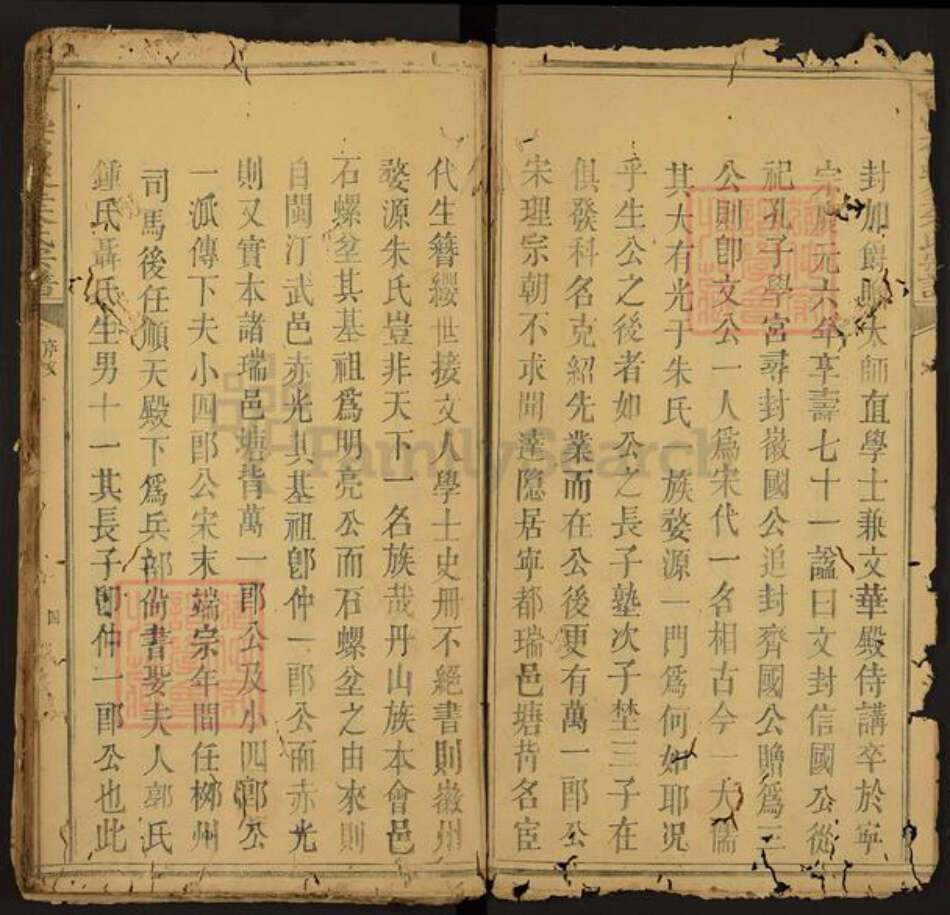 封加爵贈太師直學士兼文華殿侍講卒於寧
宗慶元六年享壽七十一諡曰文封信國公從
祀孔子學宮尋封徽國公追封齊國公贈為三
公則卽文公一人爲宋代一名相古今一大儒
其大有光于朱氏 族婺源一門爲何如耶况
乎生公之後者如公之長子塾次子埜三子在
俱發科名克紹先業而在公後更有萬一郎公
宋理宗朝不求聞達隱居寧都瑞邑塘背名宦
代生簪纓世接文人學士史册不絕書則徽州
婺源朱氏豈非天下一名族哉丹山族本會邑
石螺坌其基祖爲明亮公而石螺坌之由來則
自閩汀武邑赤光其基祖卽仲一郎公而赤光
則又實本諸瑞邑塘背萬一郎公及小四郎公
一派傳下夫小四郎公宋末端宗年間任柳州
司馬後任順天殿下爲兵部尙書娶夫人郭氏
鍾氏聶氏生男十一其長子卽仲一郎公也此
序
四
FamilySearch